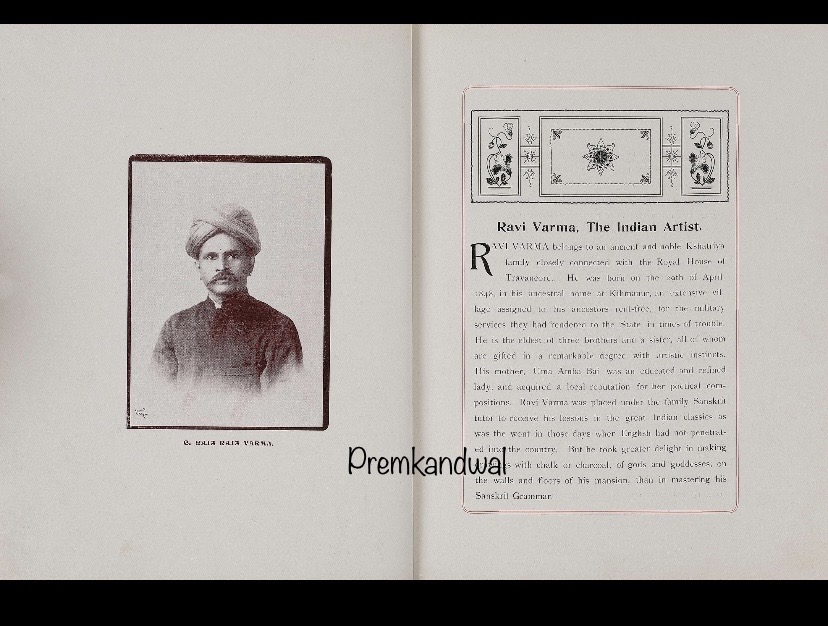 C. RAJA RAJA VARMA.
Premkandwal
Ravi Varma, The Indian Artist.
RAVI VARMA belongs to an ancient and noble Kshatriya
family closely connected with the Royal House of
Travancore. He was born on the 29th of April
1848, in his ancestral home at Kilimanur, an extensive vil-
lage assigned to his ancestors rent-free, for the military
services they had rendered to the State in times of trouble.
He is the eldest of three brothers and a sister, all of whom
are gifted in a remarkable degree with artistic instincts.
His mother, Uma Amba Bai, was an educated and refined
lady, and acquired a local reputation for her poetical com-
positions. Ravi Varma was placed under the family Sanskrit
tutor to receive his lessons in the great Indian classics as
was the wont in those days when English had not penetrat-
ed into the country. But he took greater delight in making
with chalk or charcoal, of gods and goddesses, on
the walls and floors of his mansion, than in mastering his
Sanskrit Grammar.